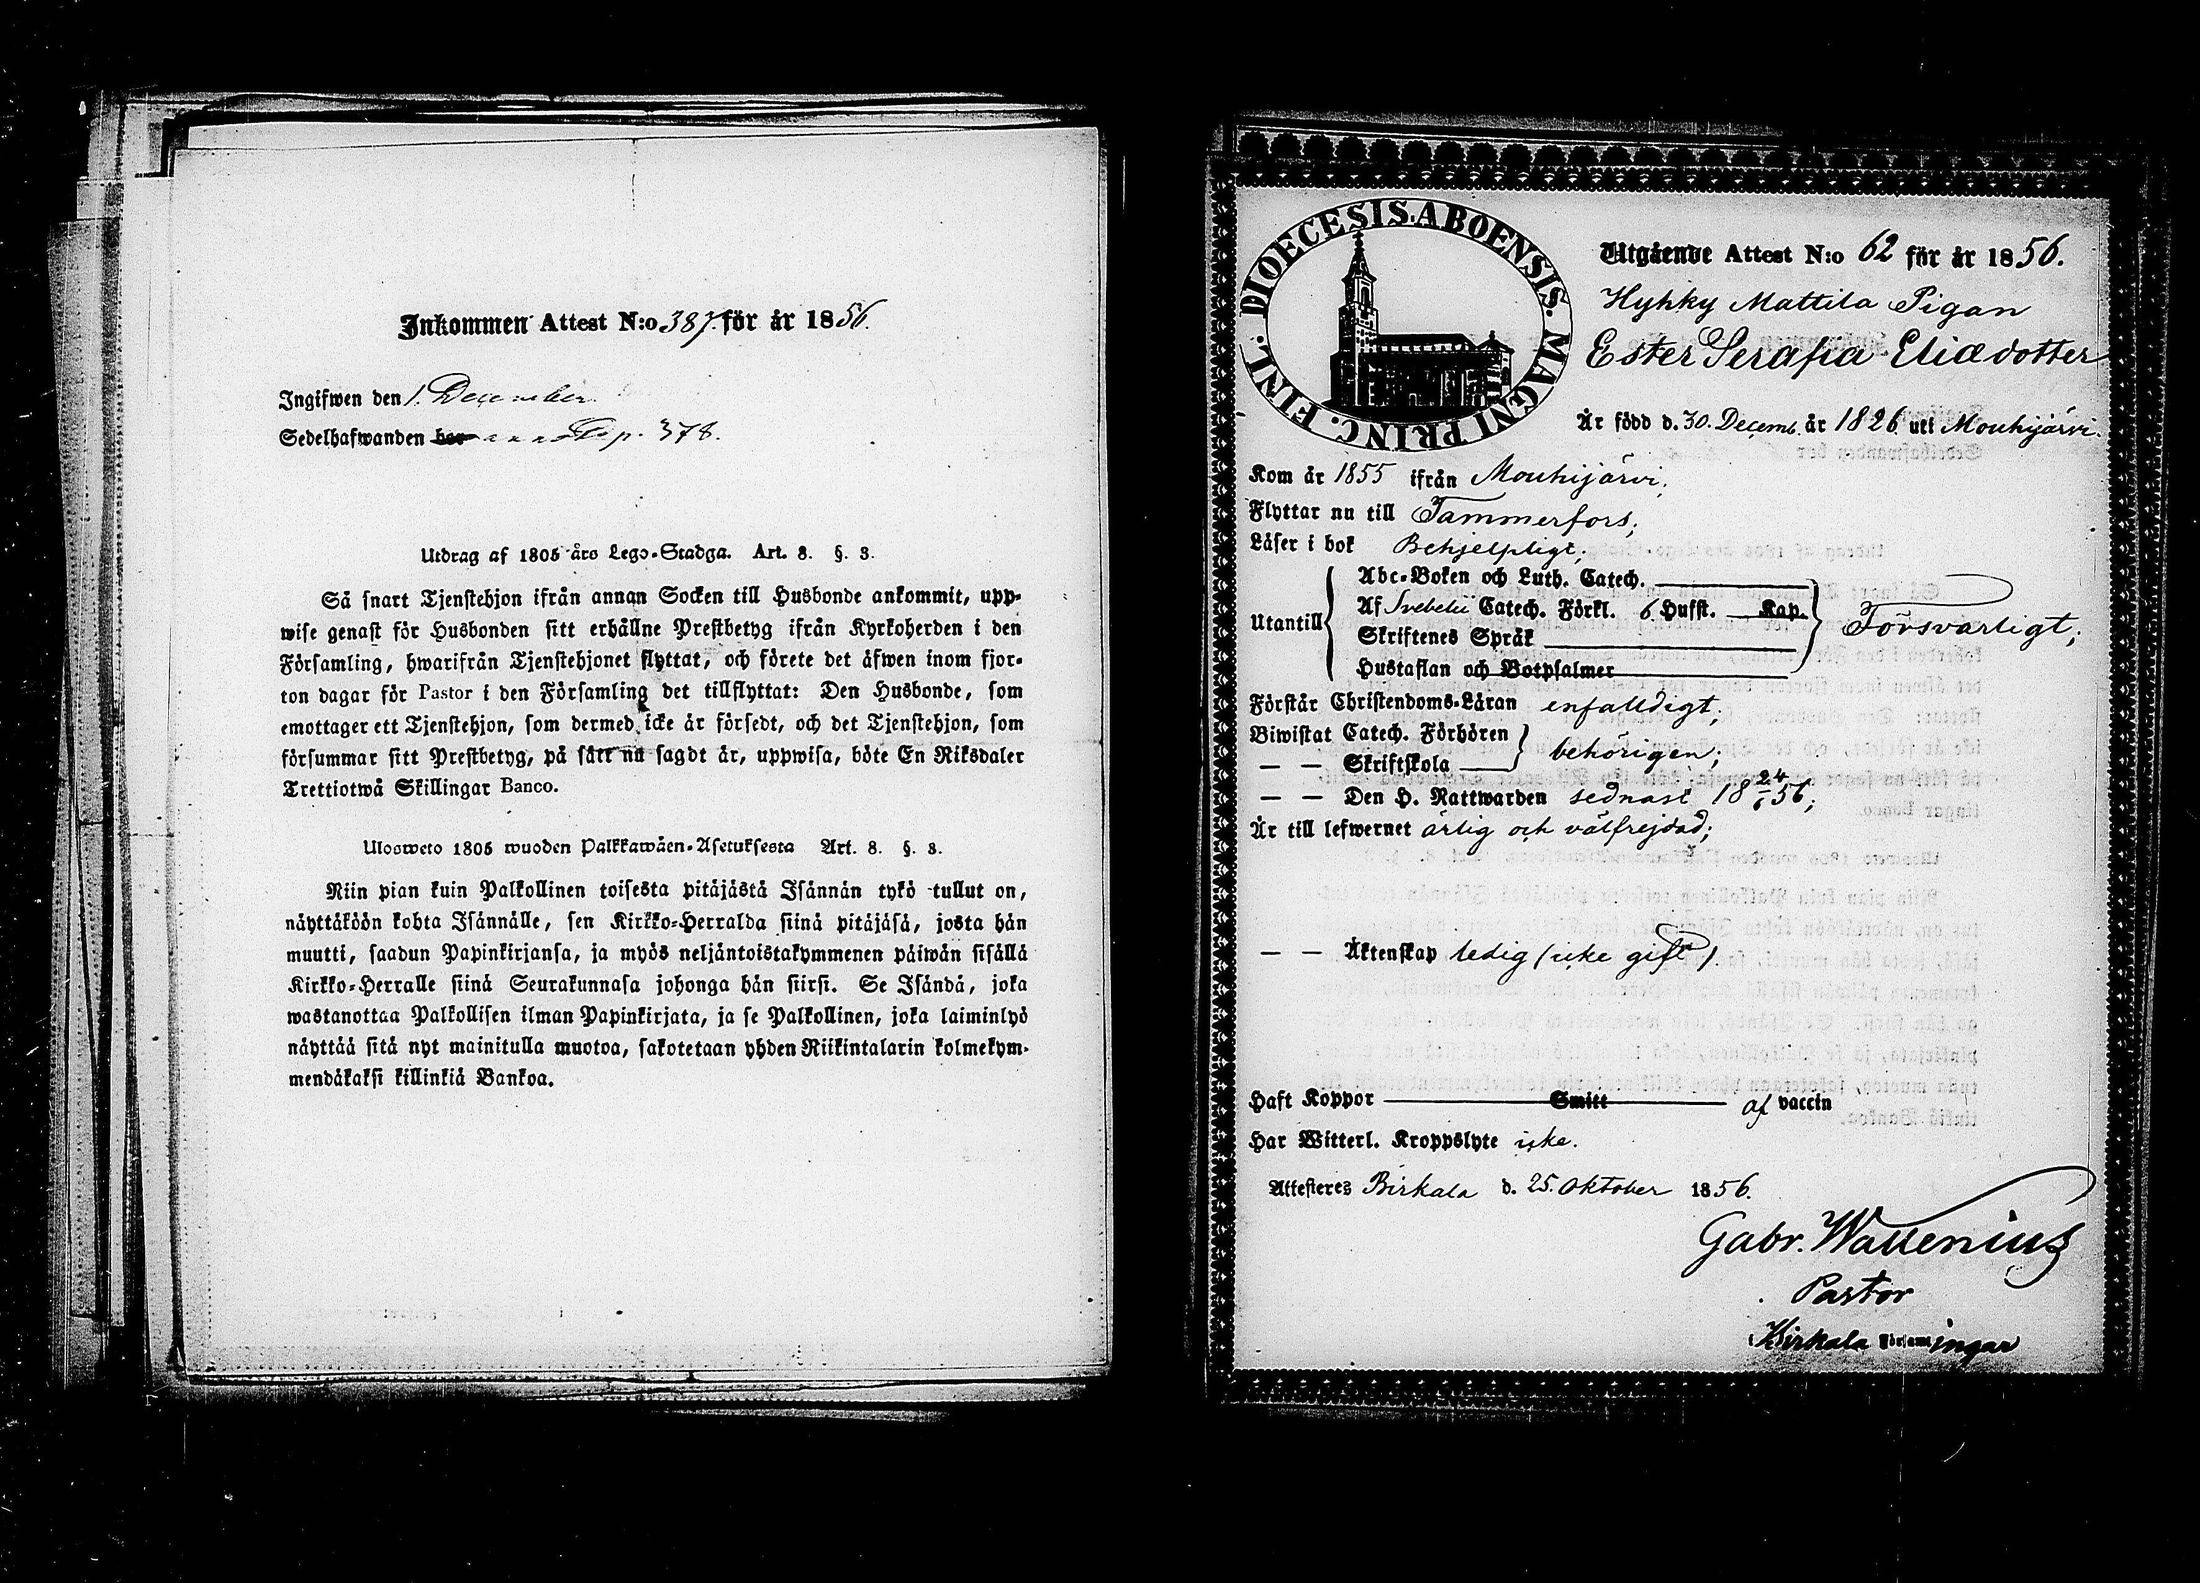 Inkommen Attest N:o 387. för år 1856.
Ingifwen den 1. December.
Sedelhafwanden har annot. p. 378.
Utdrag af 1805 års Lego-Stadga. Art. 8. §. 3.
Så snart Tjenstehjon ifrån annan Socken till Husbonde ankommit, upp-
wise genast för Husbonden sitt erhållne Prestbetyg ifrån Kyrkoherden i den
Församling, hwarifrån Tjenstehjonet flyttat, och förete det äfwen inom fjor-
ton dagar för Pastor i den Församling det tillflyttat: Den Husbonde, som
emottager ett Tjenstehjon, som dermed icke är försedt, och det Tjenstehjon, som
försummar sitt Prestbetyg, på sätt nu sagdt är, uppwisa, böte En Riksdaler
Trettiotwå Skillingar Banco.
Ulosweto 1805 wuoden Palkkawäen-Asetuksesta Art. 8. §. 3.
Niin pian kuin Palkollinen toisesta pitäjästä Isännän tykö tullut on,
näyttäköön kohta Isännälle, sen Kirkko-Herralda siinä pitäjäsä, josta hän
muutti, saadun Papinkirjansa, ja myös neljäntoistakymmenen päiwän sisällä
Kirkko-Herralle siinä Seurakunnasa johonga hän siirsi. Se Isändä, joka
wastanottaa Palkollisen ilman Papinkirjata, ja se Palkollinen, joka laiminlyö
näyttää sitä nyt mainitulla muotoa, sakotetaan yhden Riikintalarin kolmekym-
mendäkaksi killinkiä Bankoa.
DIOECESIS. ABOENSIS. MAGNI PRINC. FINL.
Utgående Attest N:o 62 för år 1856.
Hyhky Mattila Pigan
Ester Serafia Eliædotter
Är född d. 30. Decemb. år 1826 uti Mouhijärvi.
Kom år 1855 ifrån Mouhijärvi;
Flyttar nu till Tammerfors;
Läser i bok Behjelpligt;
Utantill
Abc-Boken och Luth. Catech.
Af Svebelii Catech. Förkl. 6 Hufst. Kap.
Skriftenes Språk
Hustaflan och Botpsalmer
Försvarligt;
Förstår Christendoms-Läran enfaldigt;
Biwistat Catech. Förhören
— — Skriftskola
behörigen;
— — Den H. Nattwarden sednast 18 24/6 56;
Är till lefwernet ärlig och välfrejdad;
— — Äktenskap ledig (icke gift)
Haft Koppor Smitt af vaccin
Har Witterl. Kroppslyte icke.
Attesteres Birkala d. 25. Oktober 1856.
Gabr. Wallenius
Pastor
i Birkala Församlingar